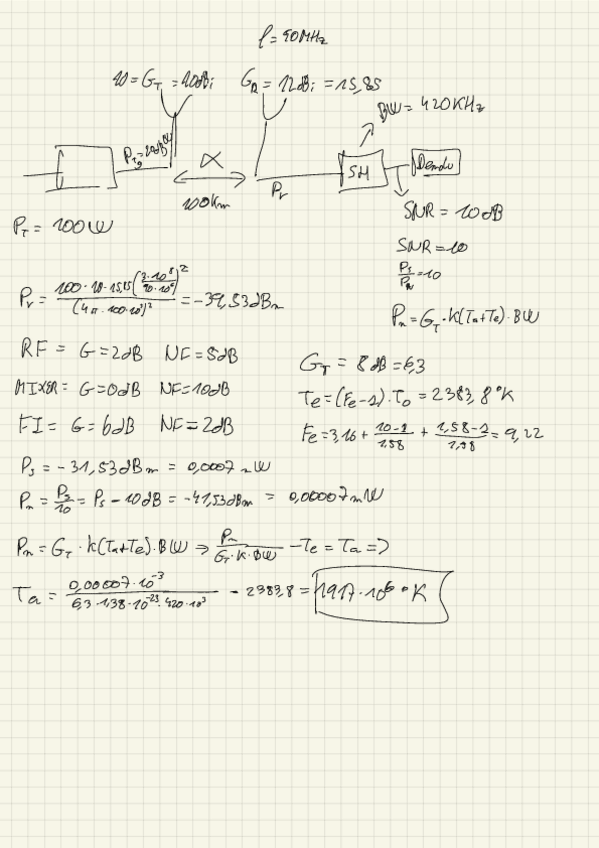 f = 90MHz
10 = G_T = 10dBi   G_R = 12dBi = 15,85
BW = 420KHz
P_T = 20dBW   α   SH   Demdu
100Km   P_r
SNR = 10dB
P_T = 100W
SNR = 10
P_s/P_n = 10
P_r = 100·10·15,85(3·10^8/90·10^6)^2/(4π·100·10^3)^2 = -39,53dBm
P_n = G_T·K(T_a+T_e)·BW
RF = G = 2dB   NF = 5dB
G_T = 8dB = 6,3
MIXER = G = 0dB   NF = 10dB
T_e = (F_e-1)·T_0 = 2383,8°K
FI = G = 6dB   NF = 2dB
F_e = 3,16 + 10-1/1,58 + 1,58-1/1,58 = 9,22
P_s = -31,53dBm = 0,0007mW
P_n = P_s/10 = P_s - 10dB = -41,53dBm = 0,00007mW
P_n = G_T·k(T_a+T_e)·BW ⇒ P_n/G_T·K·BW - T_e = T_a ⇒
T_a = 0,00007·10^-3/6,3·1,38·10^-23·420·10^3 - 2383,8 = 1917·10^6 °K